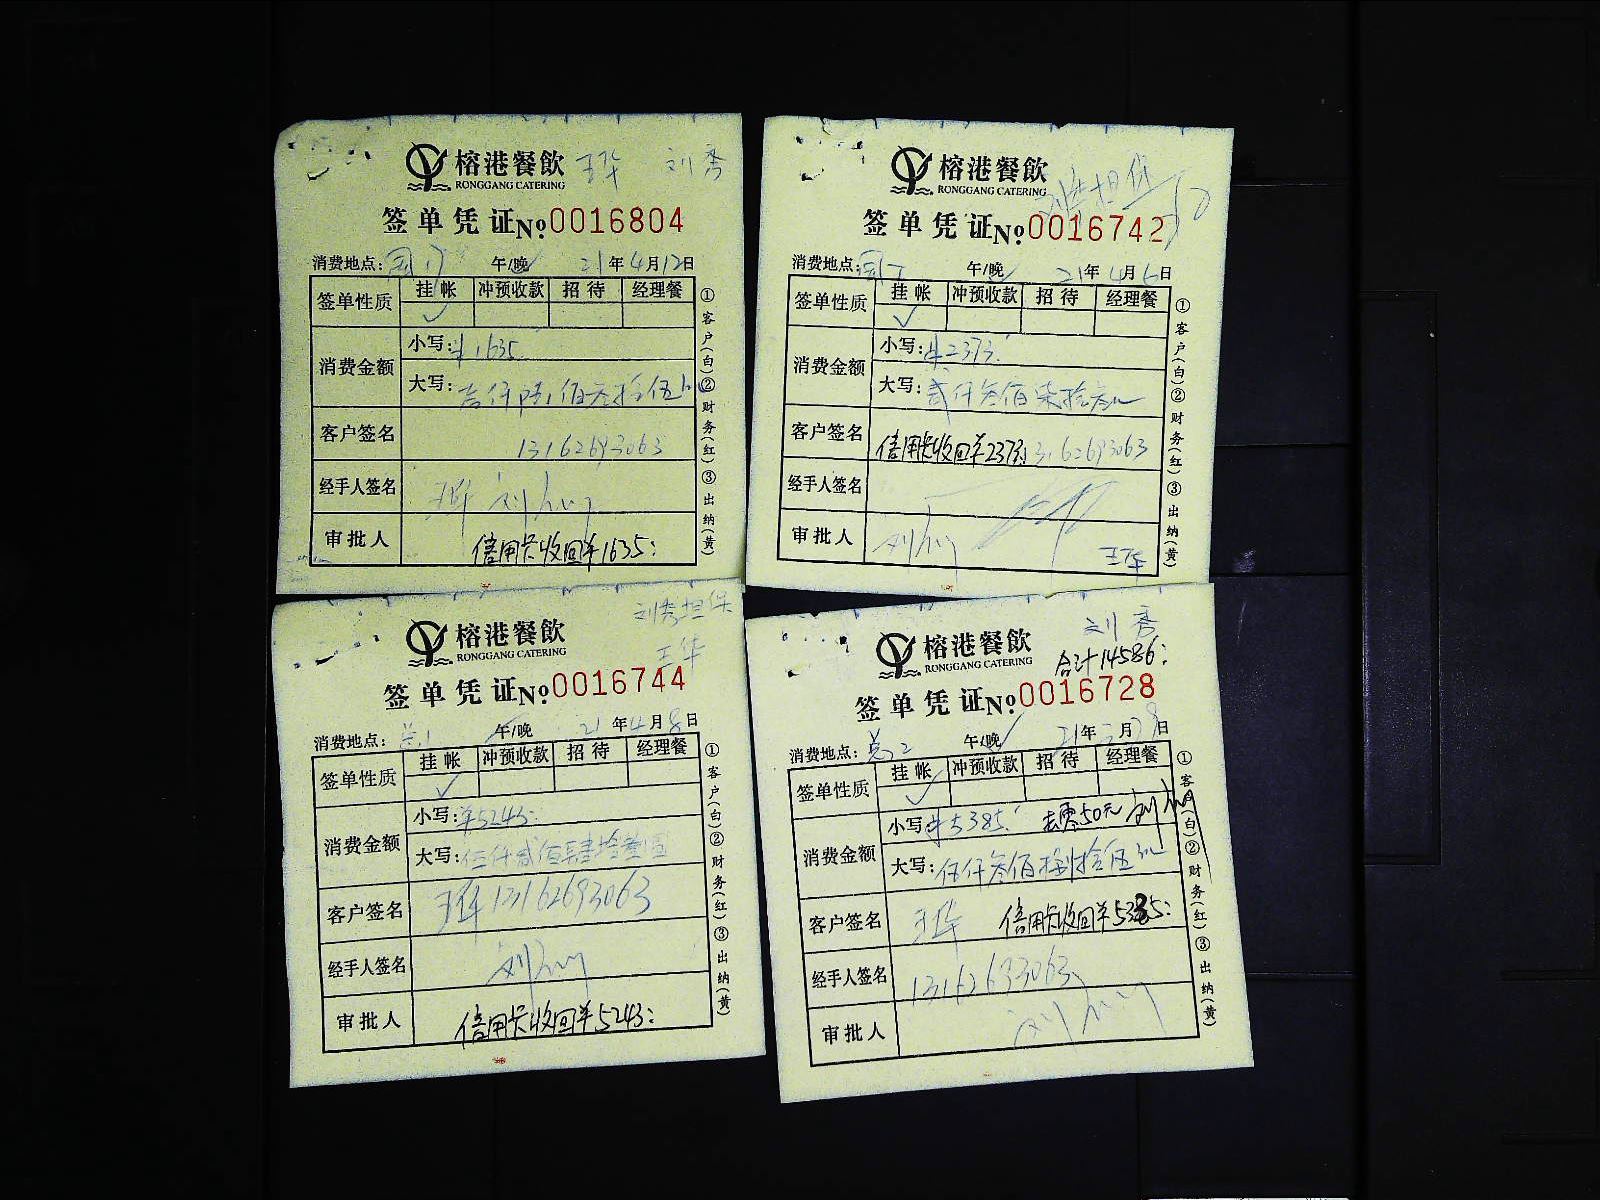 榕港餐飲 王华 刘秀
RONGGANG CATERING
签单凭证 No. 0016804
消费地点: 午/晚 21年4月12日
签单性质 挂帐 冲预收款 招待 经理餐
✓
消费金额 小写: ¥1635
大写: 壹仟陆佰叁拾伍元
客户签名 13162693063
经手人签名 王华
审批人 信用卡收回¥1635:
①客户(白)②财务(红)③出纳(黄)
榕港餐飲 担保
RONGGANG CATERING
签单凭证 No. 0016742
消费地点: 午/晚 21年4月6日
签单性质 挂帐 冲预收款 招待 经理餐
✓
消费金额 小写: ¥2373.
大写: 贰仟叁佰柒拾叁元
客户签名 信用卡收回¥2373: 13162693063
经手人签名
审批人 王华
①客户(白)②财务(红)③出纳(黄)
刘秀担保
榕港餐飲
RONGGANG CATERING 王华
签单凭证 No. 0016744
消费地点: 午/晚 21年4月8日
签单性质 挂帐 冲预收款 招待 经理餐
✓
消费金额 小写: ¥5243:
大写: 伍仟贰佰肆拾叁圆
客户签名 王华 13162693063
经手人签名
审批人 信用卡收回¥5243:
①客户(白)②财务(红)③出纳(黄)
榕港餐飲 刘秀
RONGGANG CATERING 合计14586:
签单凭证 No. 0016728
消费地点: 午/晚 21年 月 日
签单性质 挂帐 冲预收款 招待 经理餐
✓
消费金额 小写: ¥5385. 去零50元
大写: 伍仟叁佰捌拾伍元
客户签名 王华 信用卡收回¥5335:
经手人签名 13162693063
审批人
①客户(白)②财务(红)③出纳(黄)